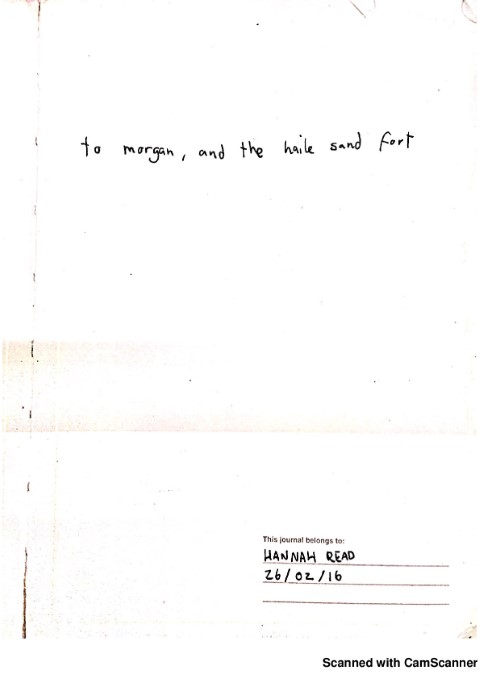 to morgan, and the haile sand fort
This journal belongs to:
HANNAH READ
26/02/16
Scanned with CamScanner